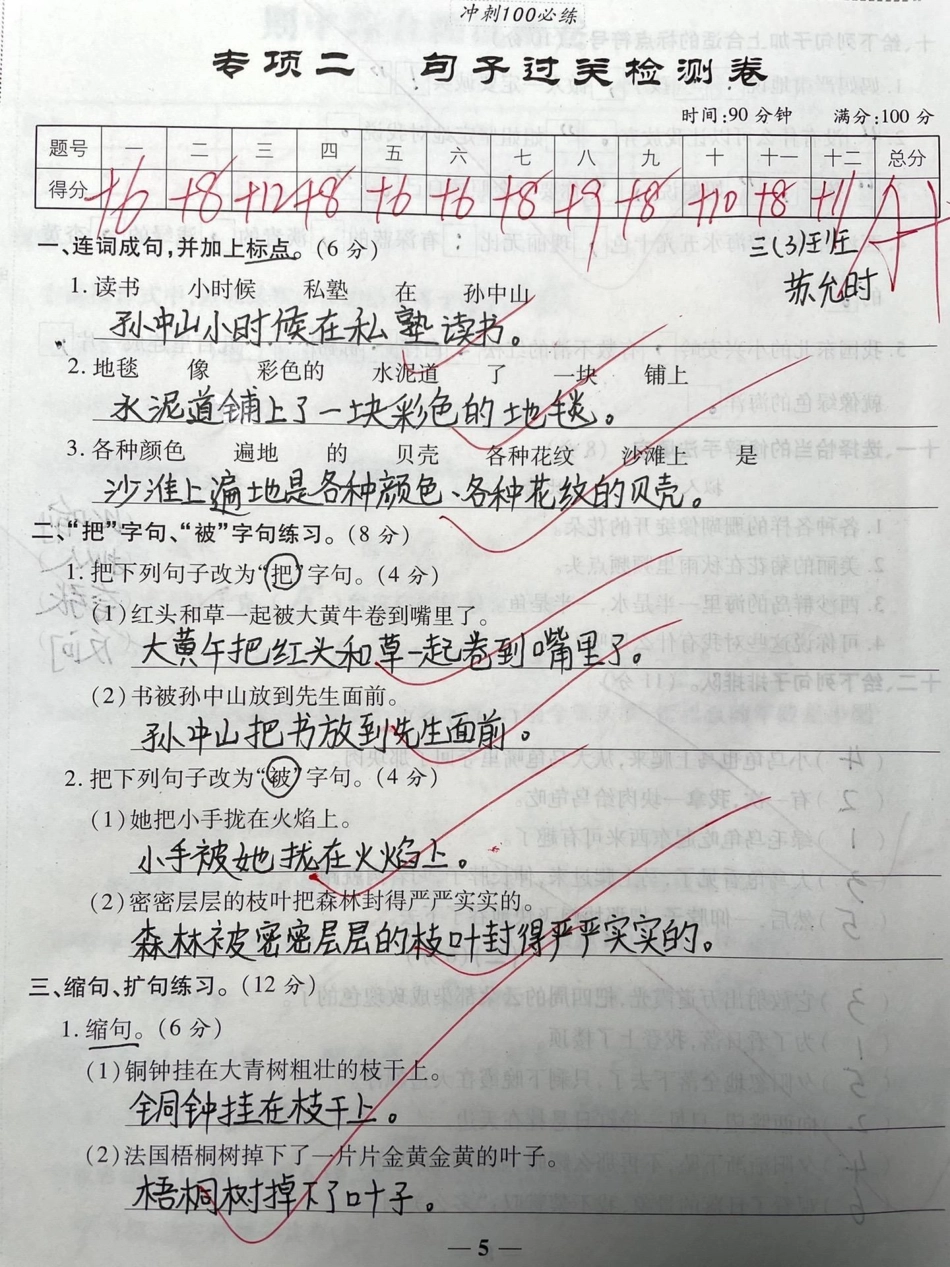 冲刺100必练
专项二 句子过关检测卷
时间:90分钟 满分:100分
题号 一 二 三 四 五 六 七 八 九 十 十一 十二 总分
得分 +6 +8 +12 +8 +6 +6 +8 +9 +8 +10 +8 +11
一、连词成句,并加上标点。(6分)
三(3)班
苏允时
1.读书 小时候 私塾 在 孙中山
孙中山小时候在私塾读书。
2.地毯 像 彩色的 水泥道 了 一块 铺上
水泥道铺上了一块彩色的地毯。
3.各种颜色 遍地 的 贝壳 各种花纹 沙滩上 是
沙滩上遍地是各种颜色、各种花纹的贝壳。
二、“把”字句、“被”字句练习。(8分)
1.把下列句子改为“把”字句。(4分)
(1)红头和草一起被大黄牛卷到嘴里了。
大黄午把红头和草一起卷到嘴里了。
(2)书被孙中山放到先生面前。
孙中山把书放到先生面前。
2.把下列句子改为“被”字句。(4分)
(1)她把小手拢在火焰上。
小手被她拢在火焰上。
(2)密密层层的枝叶把森林封得严严实实的。
森林被密密层层的枝叶封得严严实实的。
三、缩句、扩句练习。(12分)
1.缩句。(6分)
(1)铜钟挂在大青树粗壮的枝干上。
铜钟挂在枝干上。
(2)法国梧桐树掉下了一片片金黄金黄的叶子。
梧桐树掉下了叶子。
— 5 —